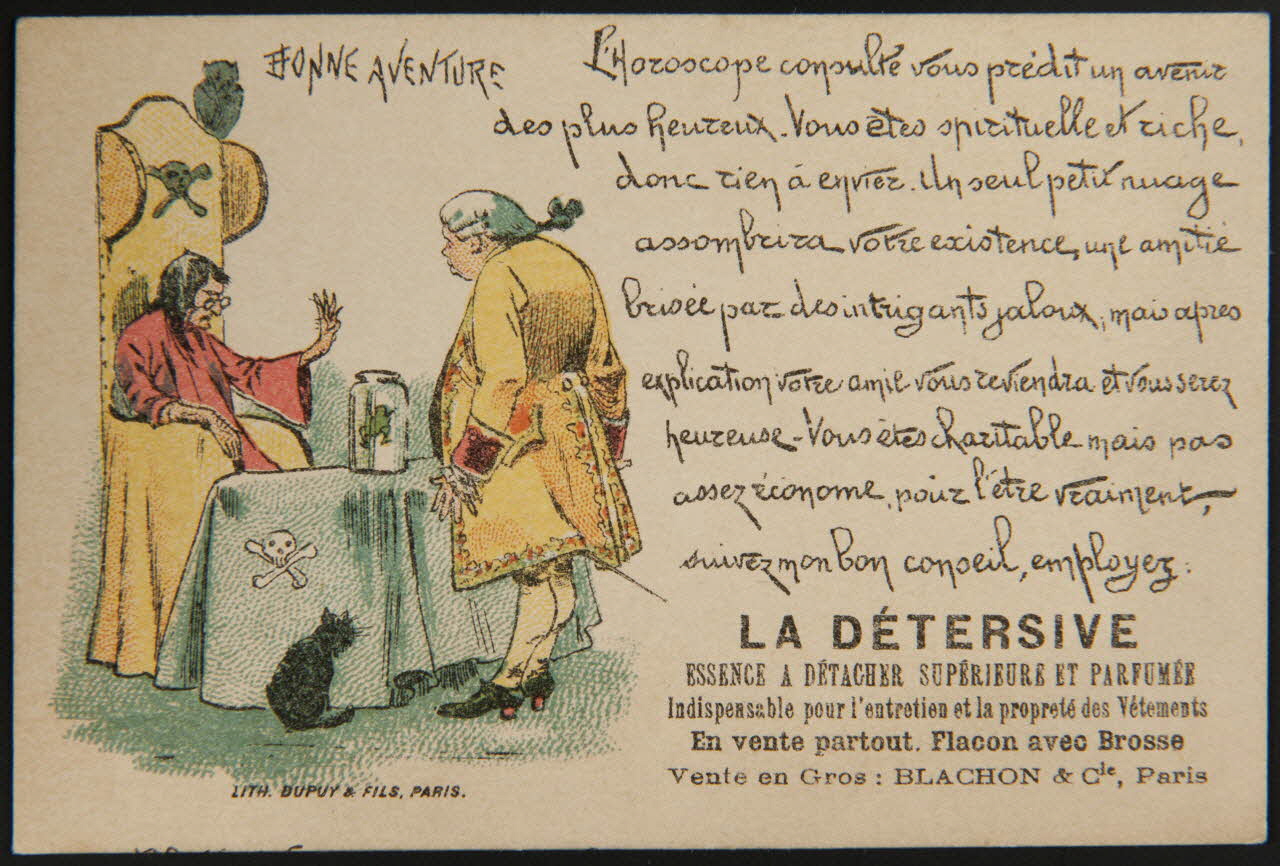 BONNE AVENTURE
L'Horoscope consulté vous prédit un avenir
des plus heureux. Vous êtes spirituelle et riche,
donc rien à envier. Un seul petit nuage
assombrira votre existence, une amitié
brisée par des intrigants jaloux, mais après
explication votre amie vous reviendra et vous serez
heureuse - Vous êtes charitable mais pas
assez économe, pour l'être vraiment,
suivez mon bon conseil, employez :
LA DÉTERSIVE
ESSENCE A DÉTACHER SUPÉRIEURE ET PARFUMÉE
Indispensable pour l'entretien et la propreté des Vêtements
En vente partout. Flacon avec Brosse
Vente en Gros : BLACHON & Cie, Paris
LITH. DUPUY & FILS, PARIS.